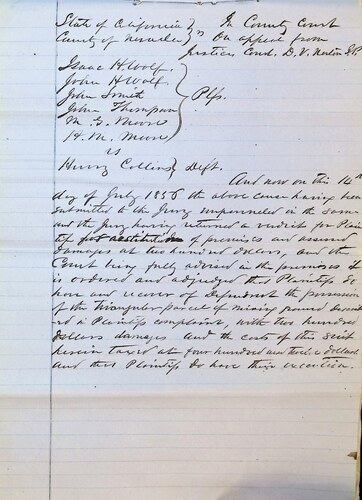 State of California } In County Court
County of Nevada } ss On appeal from
Justices Court. D. V. J.P.
Isaac H. Wolf.
John H. Wolf.
John Smith
John Thompson } Plfs.
M. G. Moore
H. M. Moore
vs
Henry Collins } Deft.
And now on this 14th
day of July 1856 the above cause having been
submitted to the Jury impanneled in the same
and the Jury having returned a verdict for Plain
tiff for restitution of premises and assess
damages at two hundred dollars, and the
Court being fully advised in the premises It
is ordered and adjudged that Plaintiffs do
have and recover of Defendant the possession
of the triangular parcel of mining ground describ
ed in Plaintiffs complaint, with two hundred
dollars damages and the costs of this suit
herein taxed at four hundred and twelve dollars
and that Plaintiffs do have their execution.